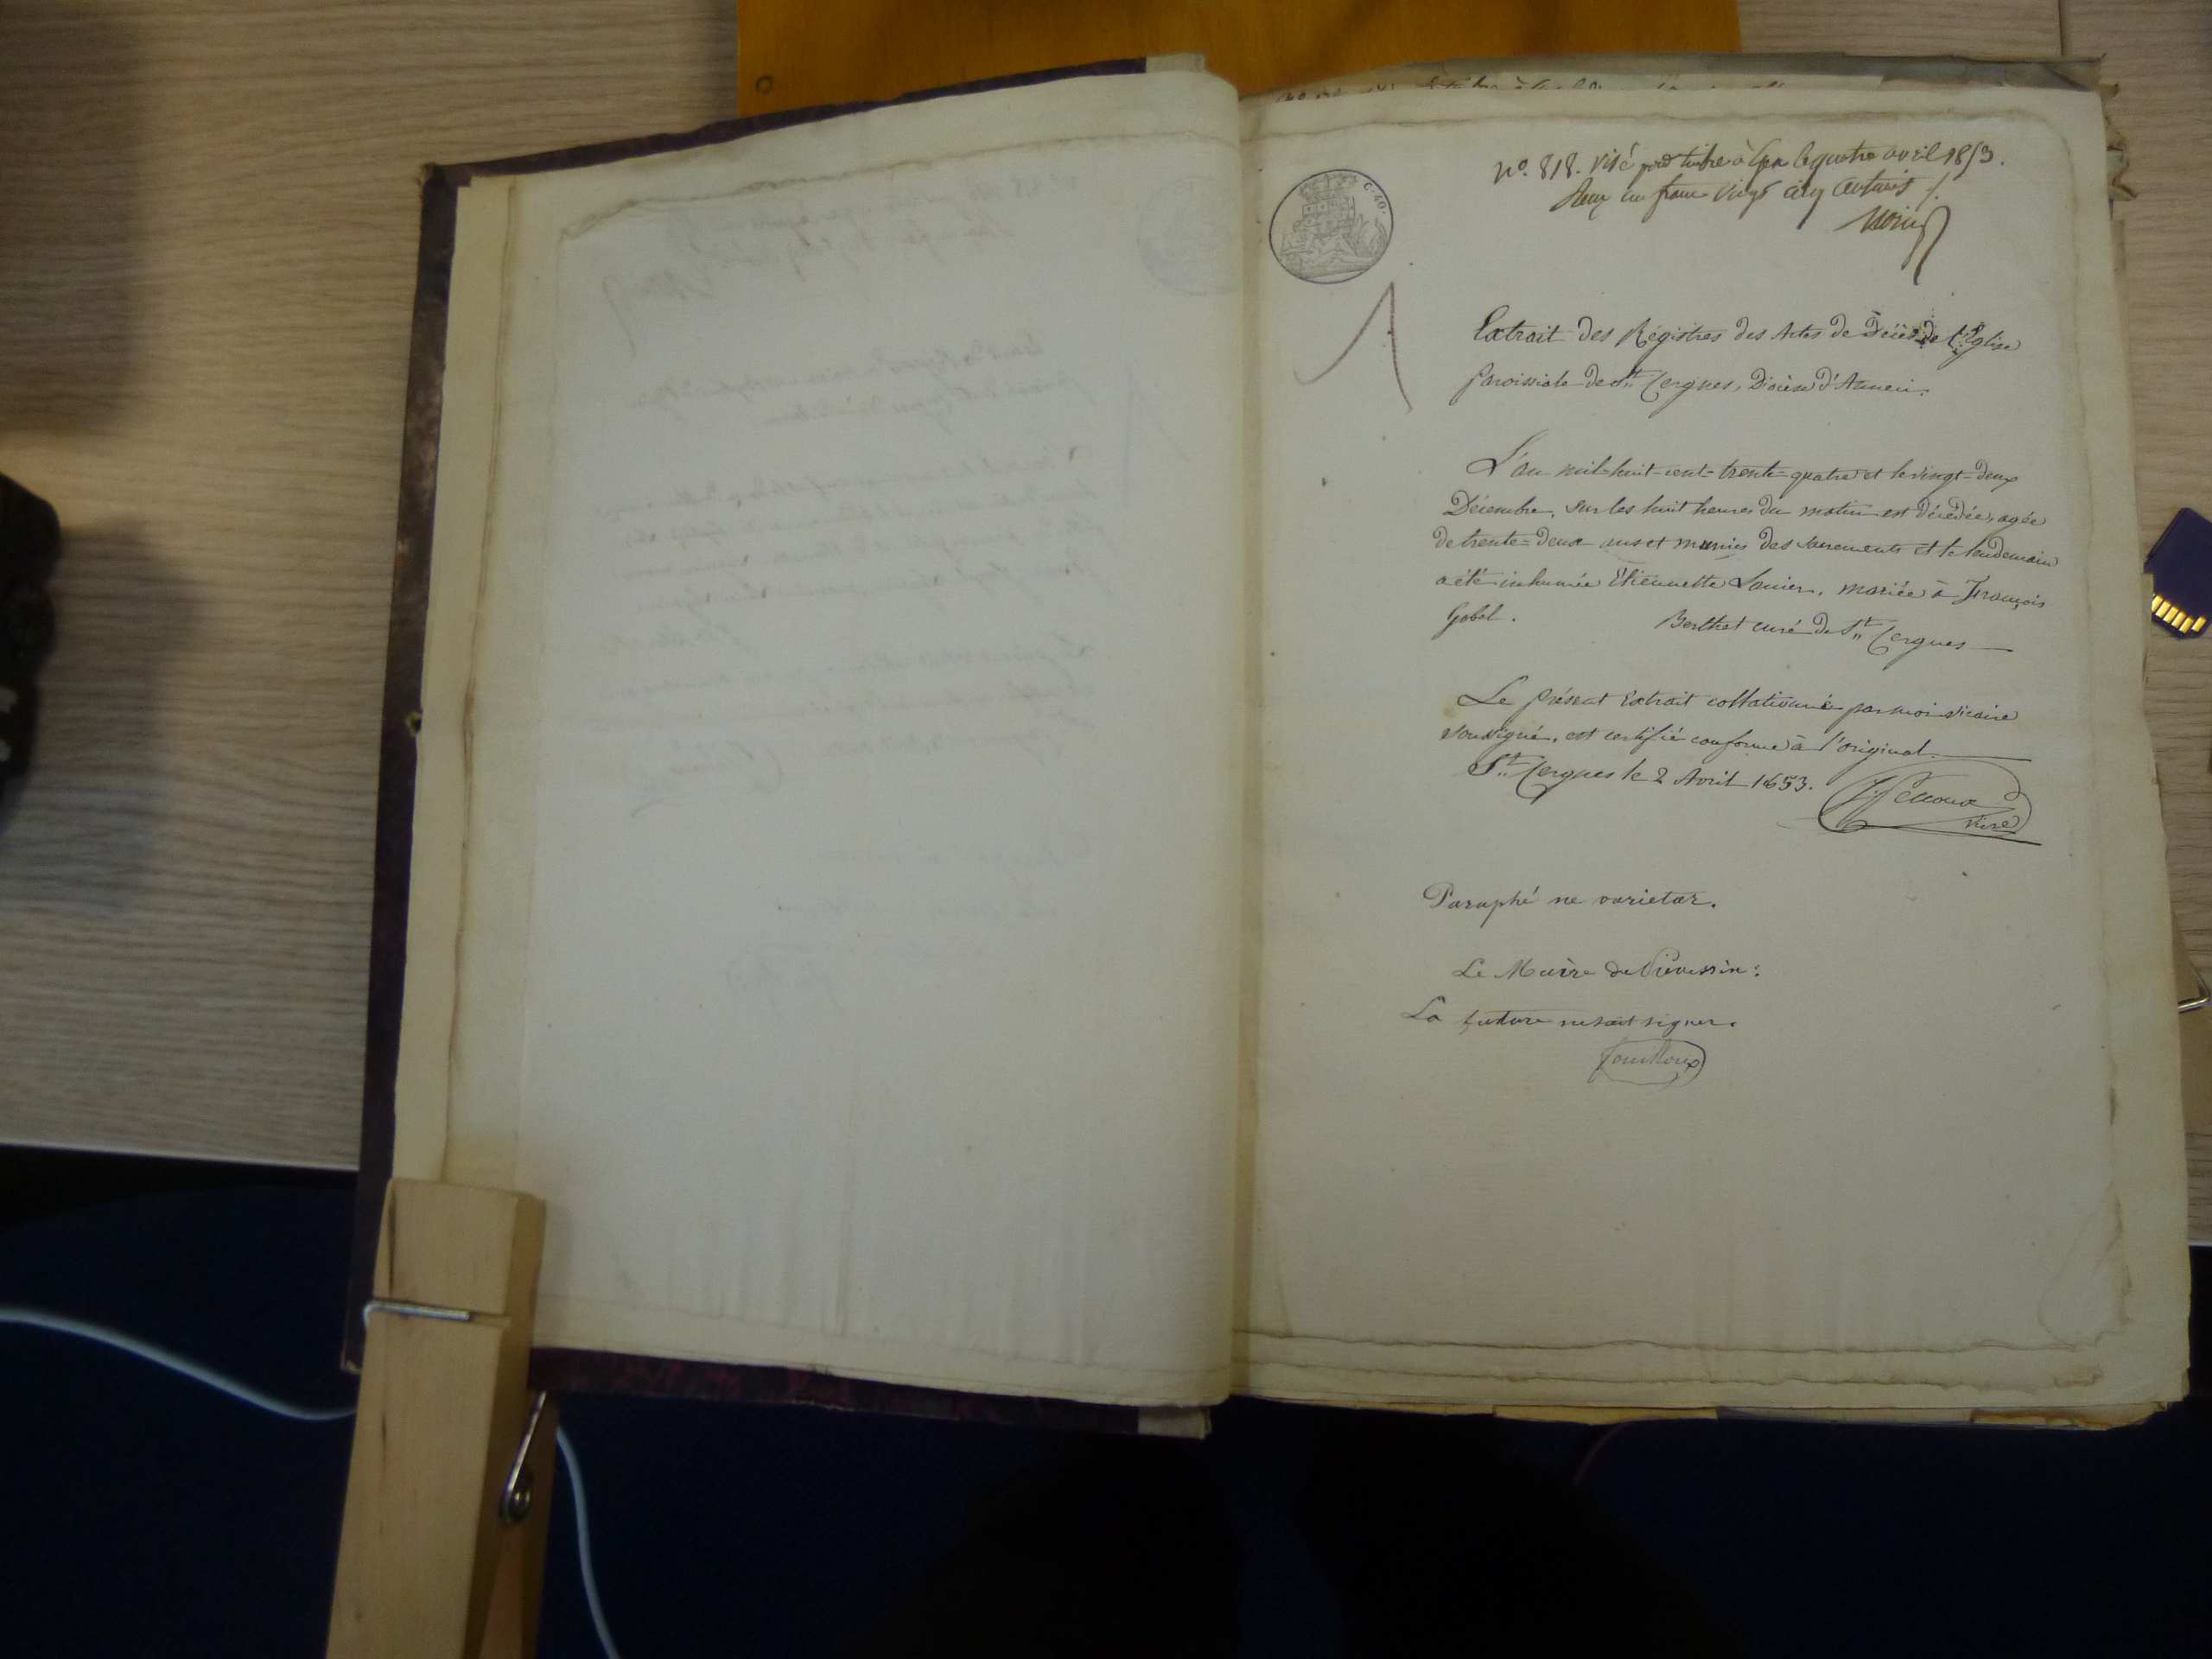 C. 40.
No. 818. Visé pour timbre à Gex le quatre avril 1853.
Reçu un franc vingt cinq centimes /.
Extrait des Régistres des Actes de Décès de l'Eglise
paroissiale de St. Cergues, Diocèse d'Anneci.
L'an mil-huit-cent-trente-quatre et le vingt-deux
Décembre, sur les huit heures du matin est décédée, agée
de trente-deux ans et munies des sacrements et le lendemain
a été inhumée Étiennette Lanier, mariée à François
Gobel.
Berthet curé de St. Cergues
Le présent Extrait collationné par moi vicaire
soussigné, est certifié conforme à l'original.
St. Cergues le 2 Avril 1853.
vire
Paraphé ne varietur.
Le Maire de Prévessin:
La future ne sait signer.
Fouilloux